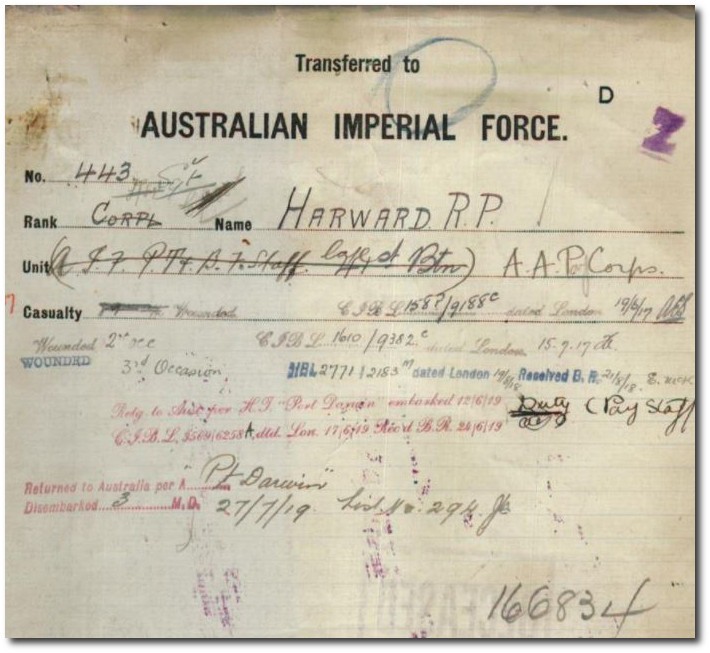 Transferred to
D
AUSTRALIAN IMPERIAL FORCE.
No. 443 Sgt
Rank Corpl Name HARWARD R.P.
Unit (A.I.F. P Btn) A.A.P. Corps.
Casualty Wounded C.I.B.L. 158?/9188c dated London 19/6/17
Wounded 2nd occ C.I.B.L. 1610/9382.c dated London. 15.7.17
WOUNDED 3rd Occasion HBL 2771/2183m dated London Received B.R. 21/8/18.
Retg to Aust per H.T. "Port Darwin" embarked 12/6/19 Duty (Pay Staff
C.I.B.L. 3569/6258A dtd. Lon. 17/6/19 Rec'd B.R. 24/6/19
Returned to Australia per A "Pt Darwin"
Disembarked 3 M.D. 27/7/19 List No. 294
DECEASED
166834